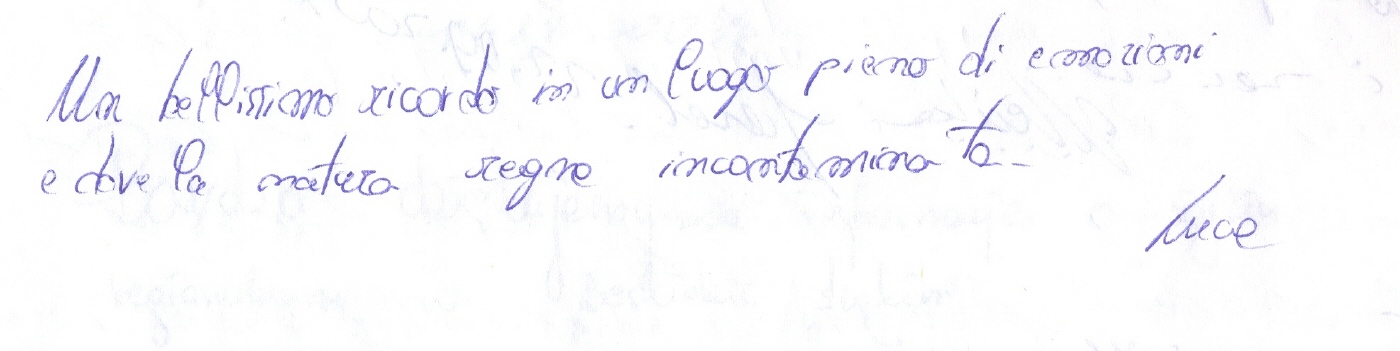 Un bellissimo ricordo in un luogo pieno di emozioni
e dove la natura regna incontaminata.
Luca